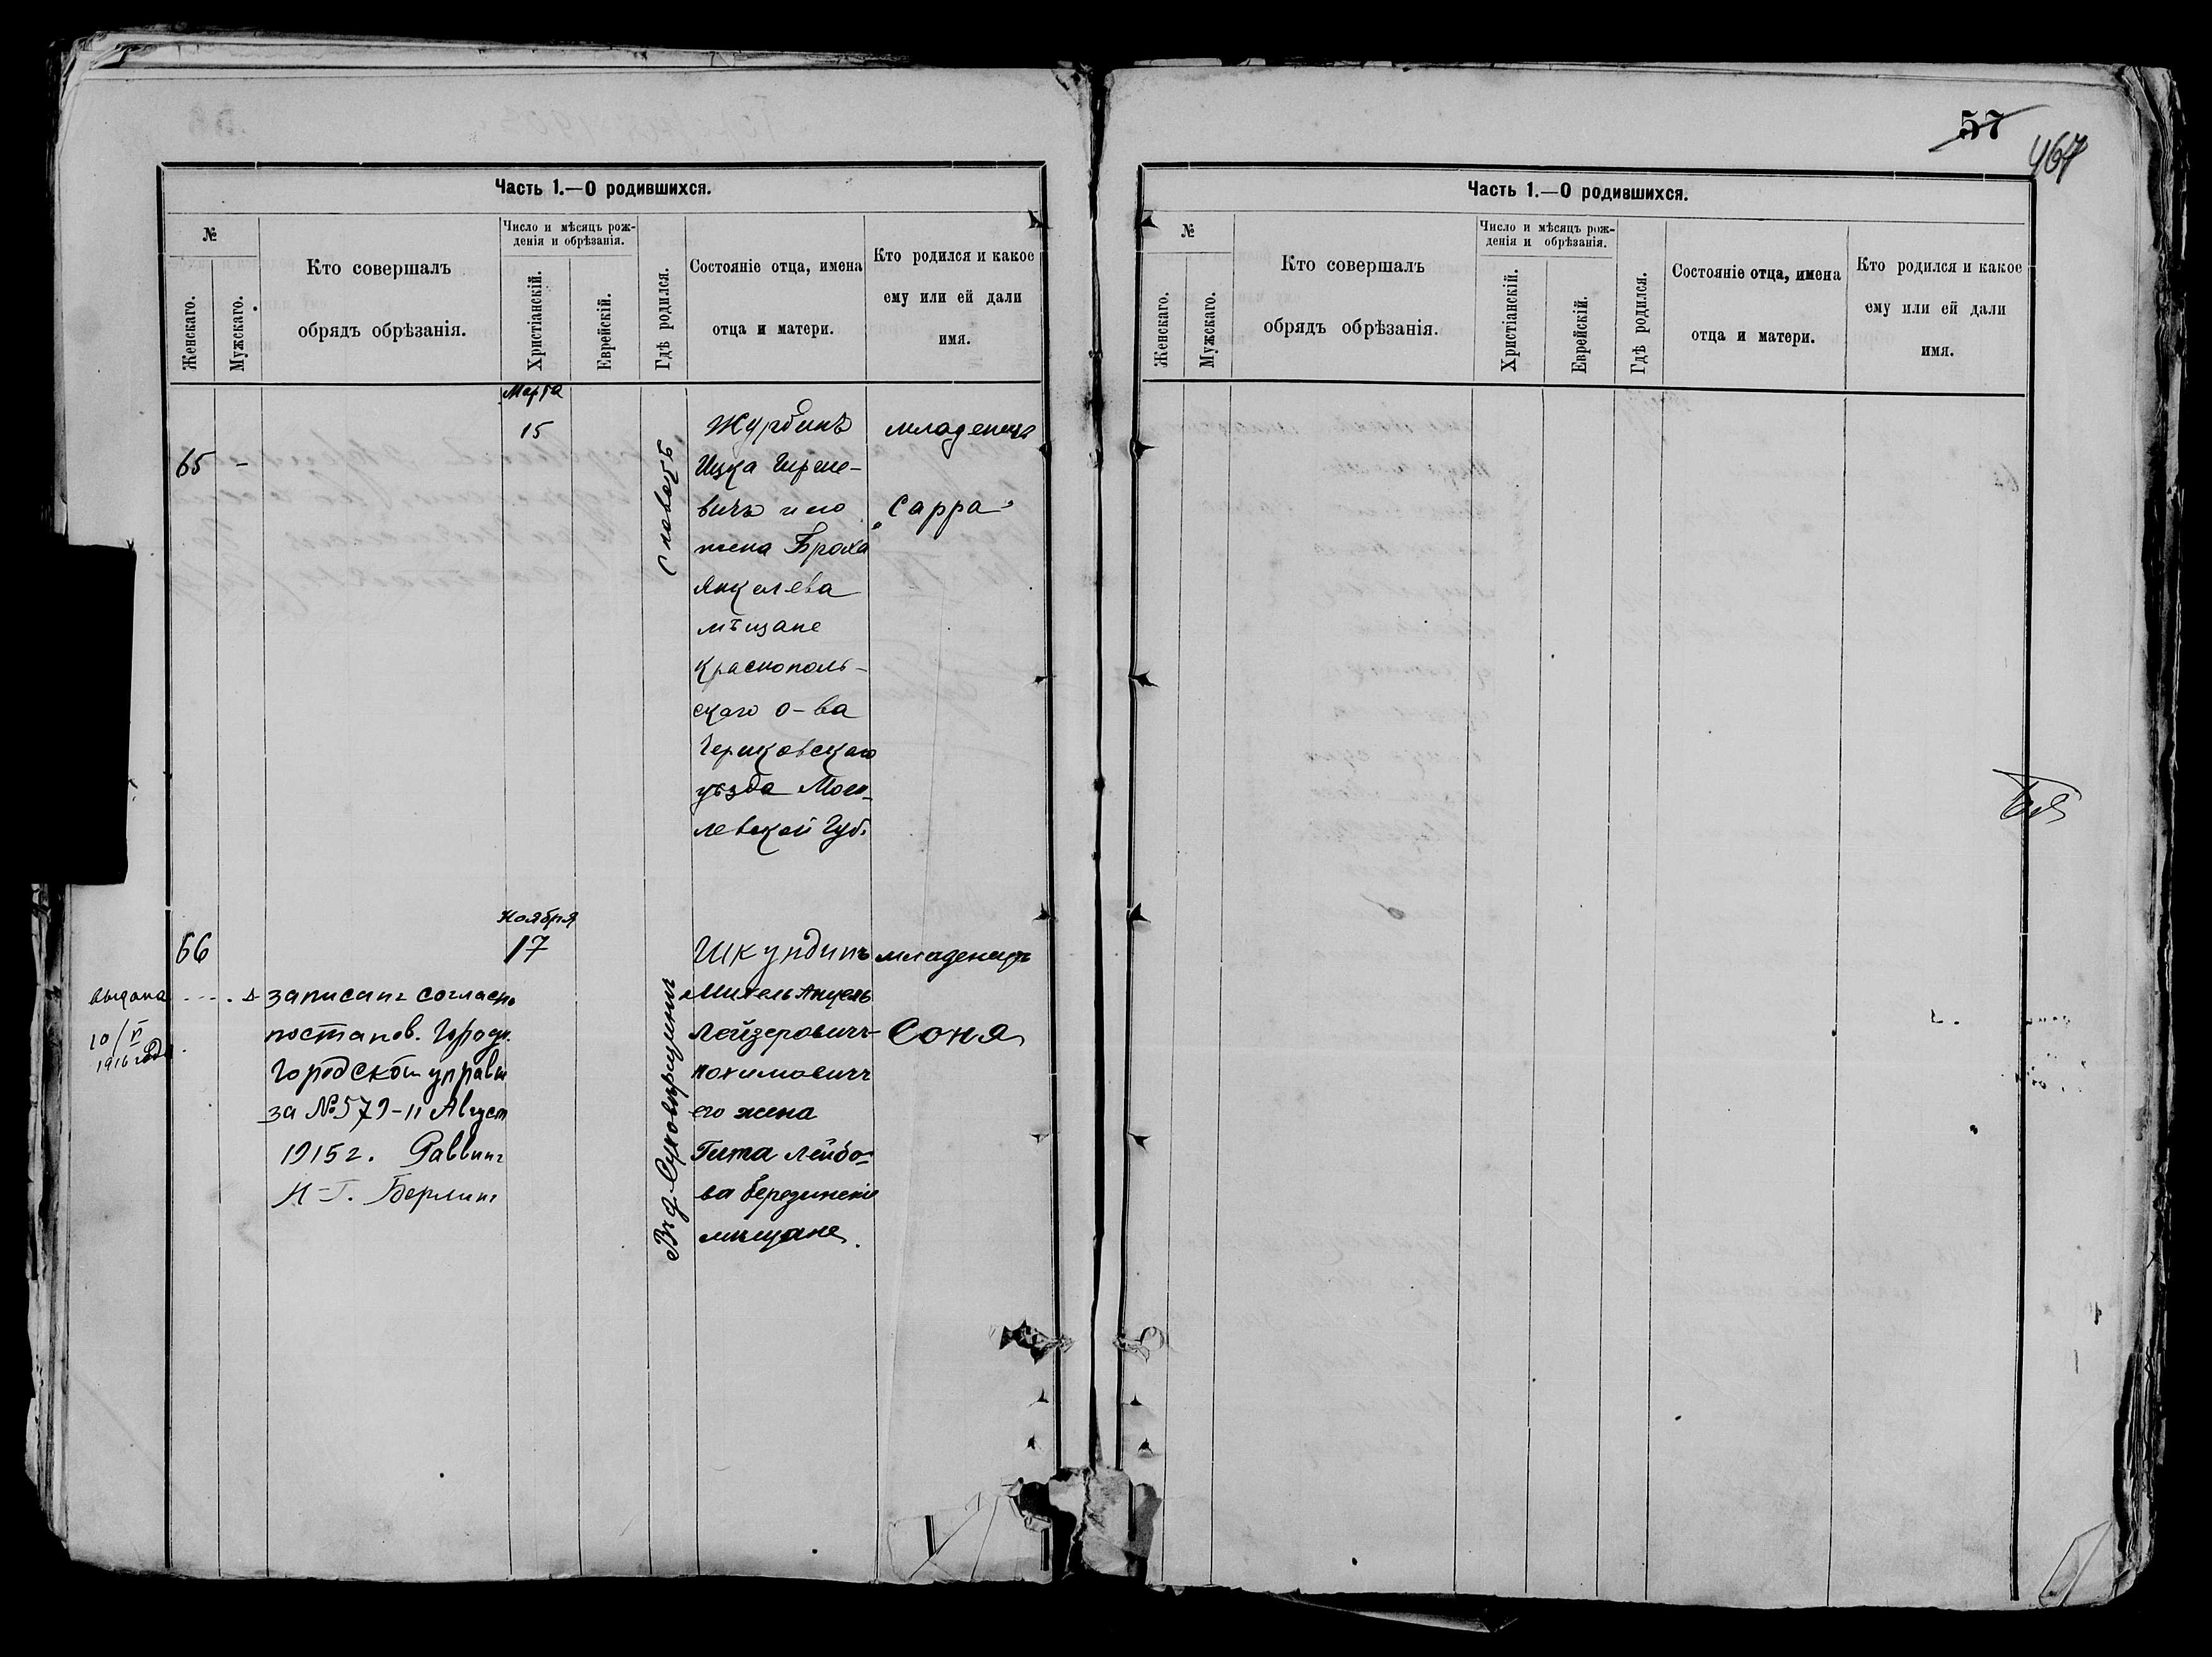 57
467
Часть 1.—О родившихся.
№
Женскаго.
Мужскаго.
Кто совершалъ
обрядъ обрѣзанія.
Число и мѣсяцъ рож-
денія и обрѣзанія.
Христіанскій.
Еврейскій.
Гдѣ родился.
Состояніе отца, имена
отца и матери.
Кто родился и какое
ему или ей дали
имя.
65 –
Марта
15
Журбинъ
Ицка
вичъ и его
жена Броха
Янкелева
мѣщане
Краснополь-
скаго о-ва
Чериковскаго
уѣзда Моги-
левской Губ.
младенецъ
„Сарра“
66
выдана
10/VI
1916 года
записанъ согласно
постанов. Городк.
Городской управы
за №579-11 Август
1915 г. Раввинъ
И-Г. Берлинъ
Ноября
17
Шкундинъ
Михель Анцель
Лейзеровичъ-
Нохимовичъ
его жена
Гита Лейбо-
ва березинскіе
мѣщане.
младенецъ
Соня
Часть 1.—О родившихся.
№
Женскаго.
Мужскаго.
Кто совершалъ
обрядъ обрѣзанія.
Число и мѣсяцъ рож-
денія и обрѣзанія.
Христіанскій.
Еврейскій.
Гдѣ родился.
Состояніе отца, имена
отца и матери.
Кто родился и какое
ему или ей дали
имя.